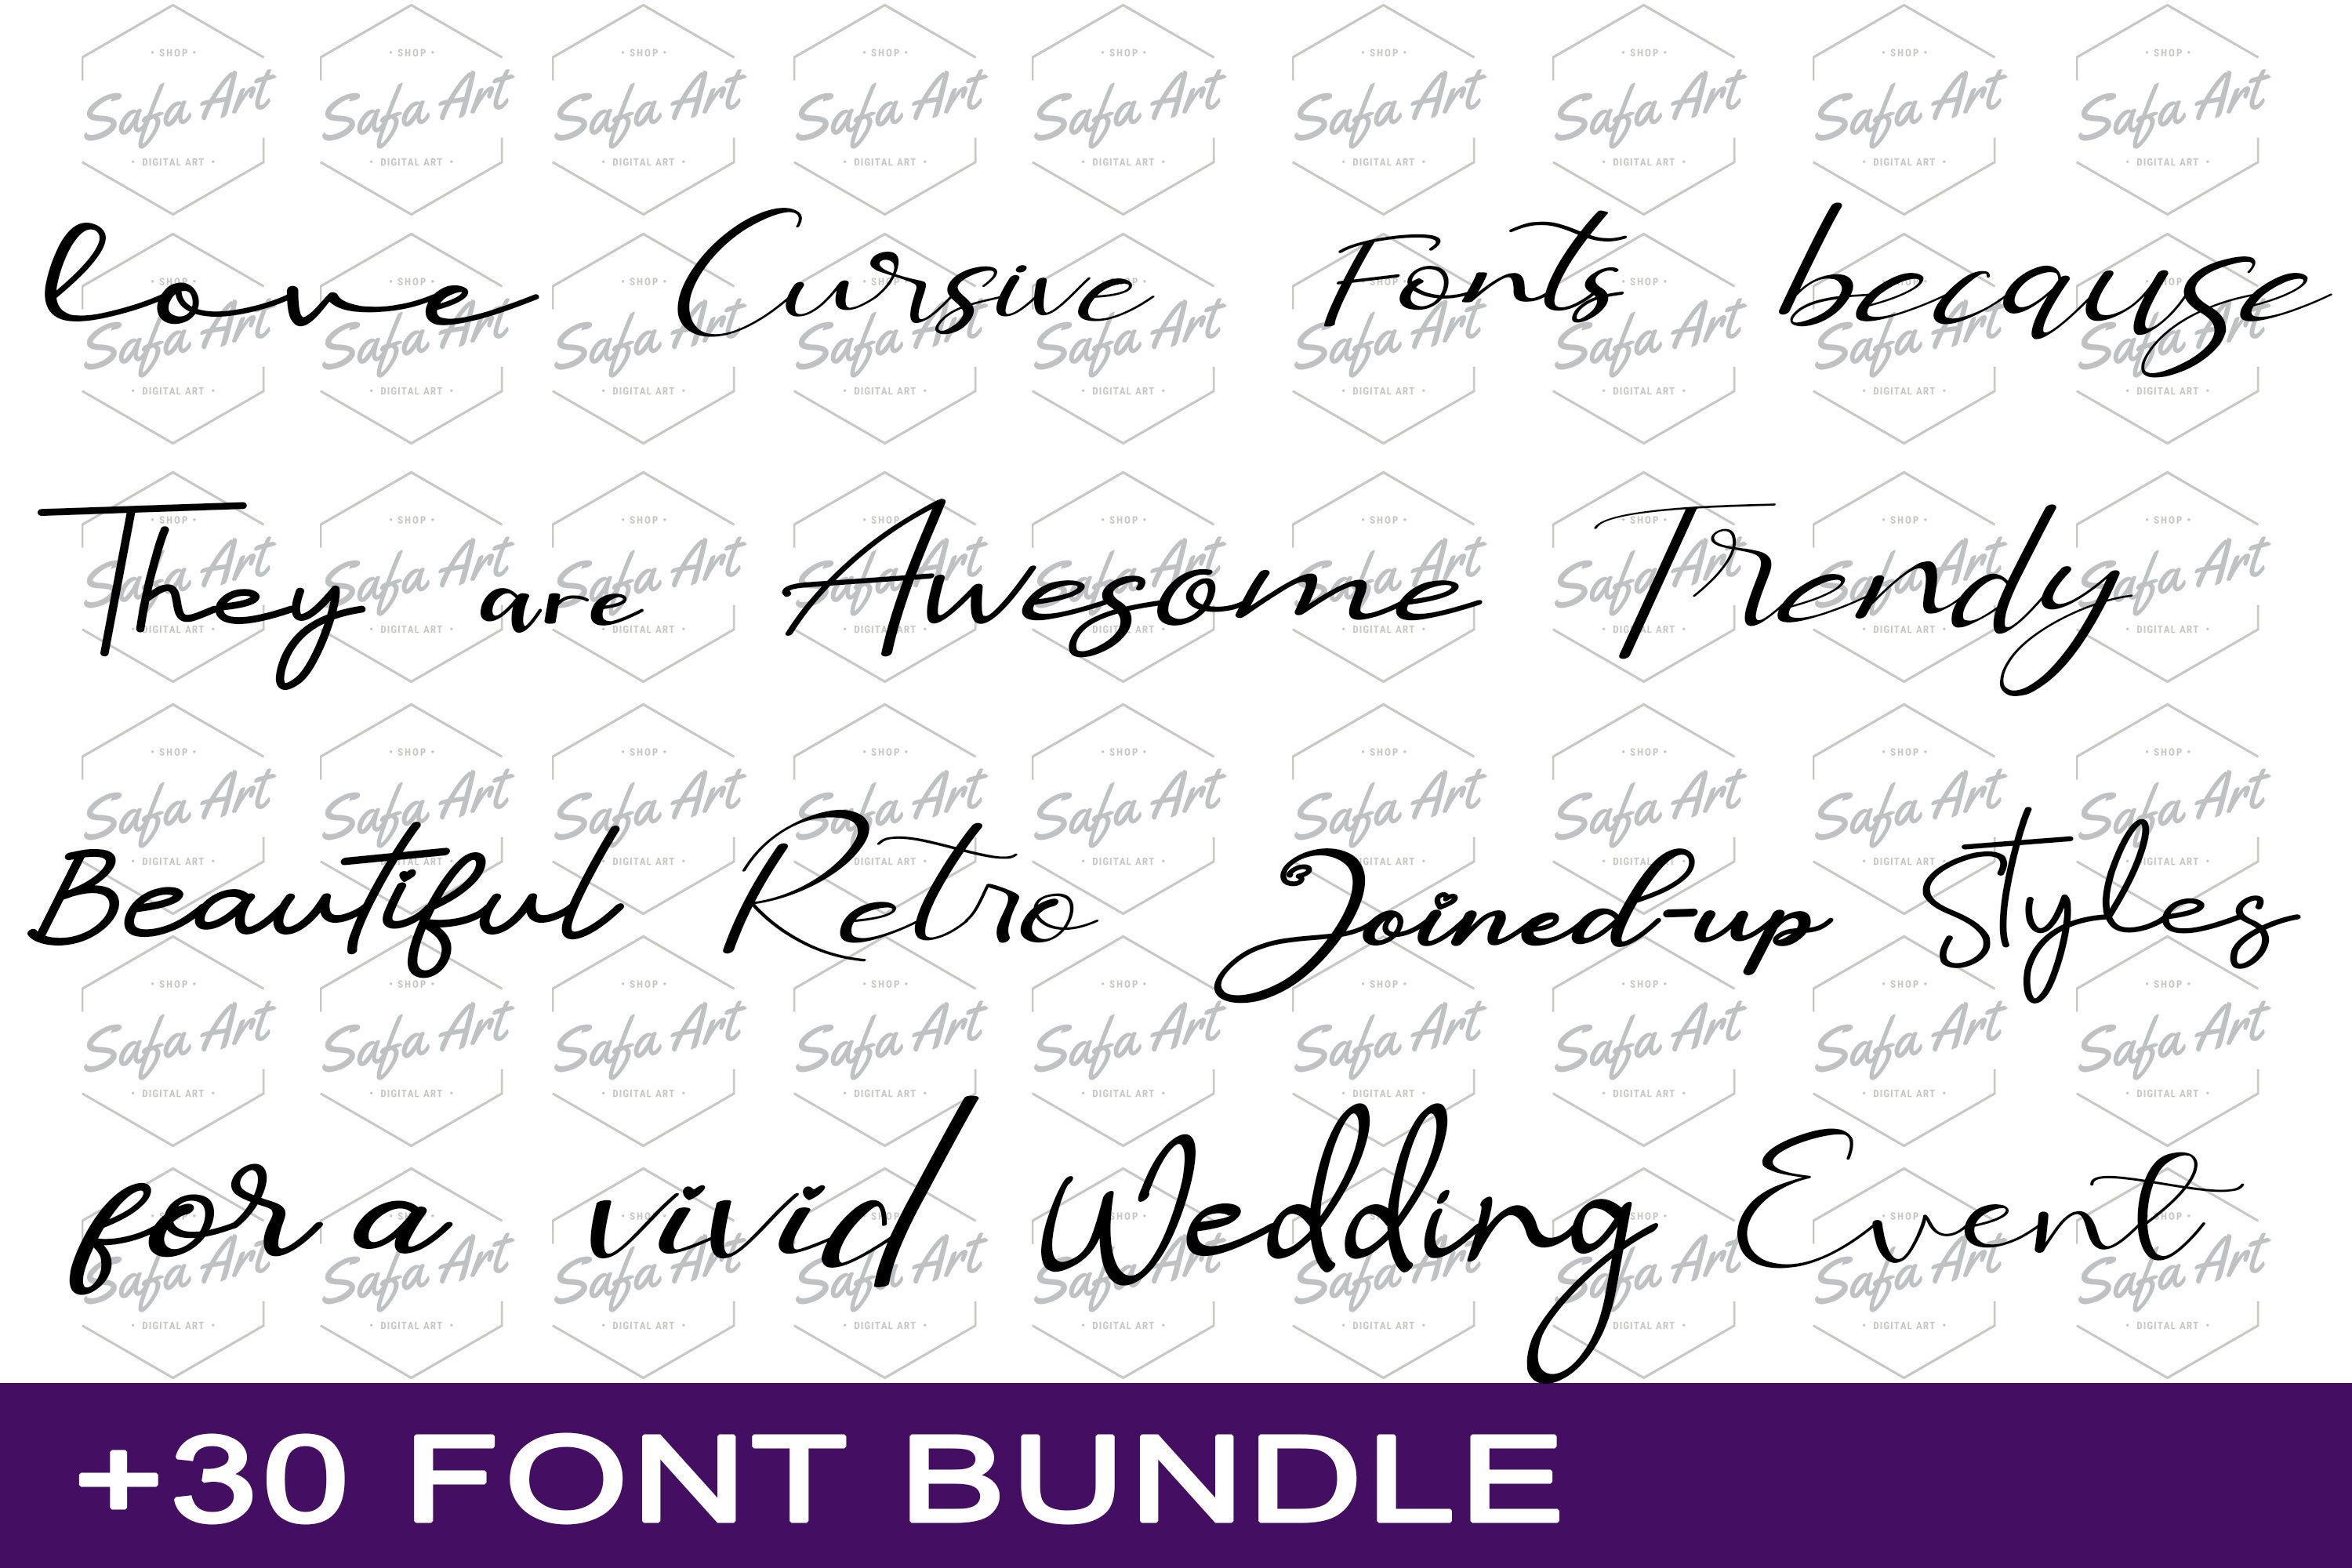 love Cursive Fonts because
They are Awesome Trendy
Beautiful Retro Joined-up Styles
for a vivid Wedding Event
+30 FONT BUNDLE
SHOP
Safa Art
DIGITAL ART